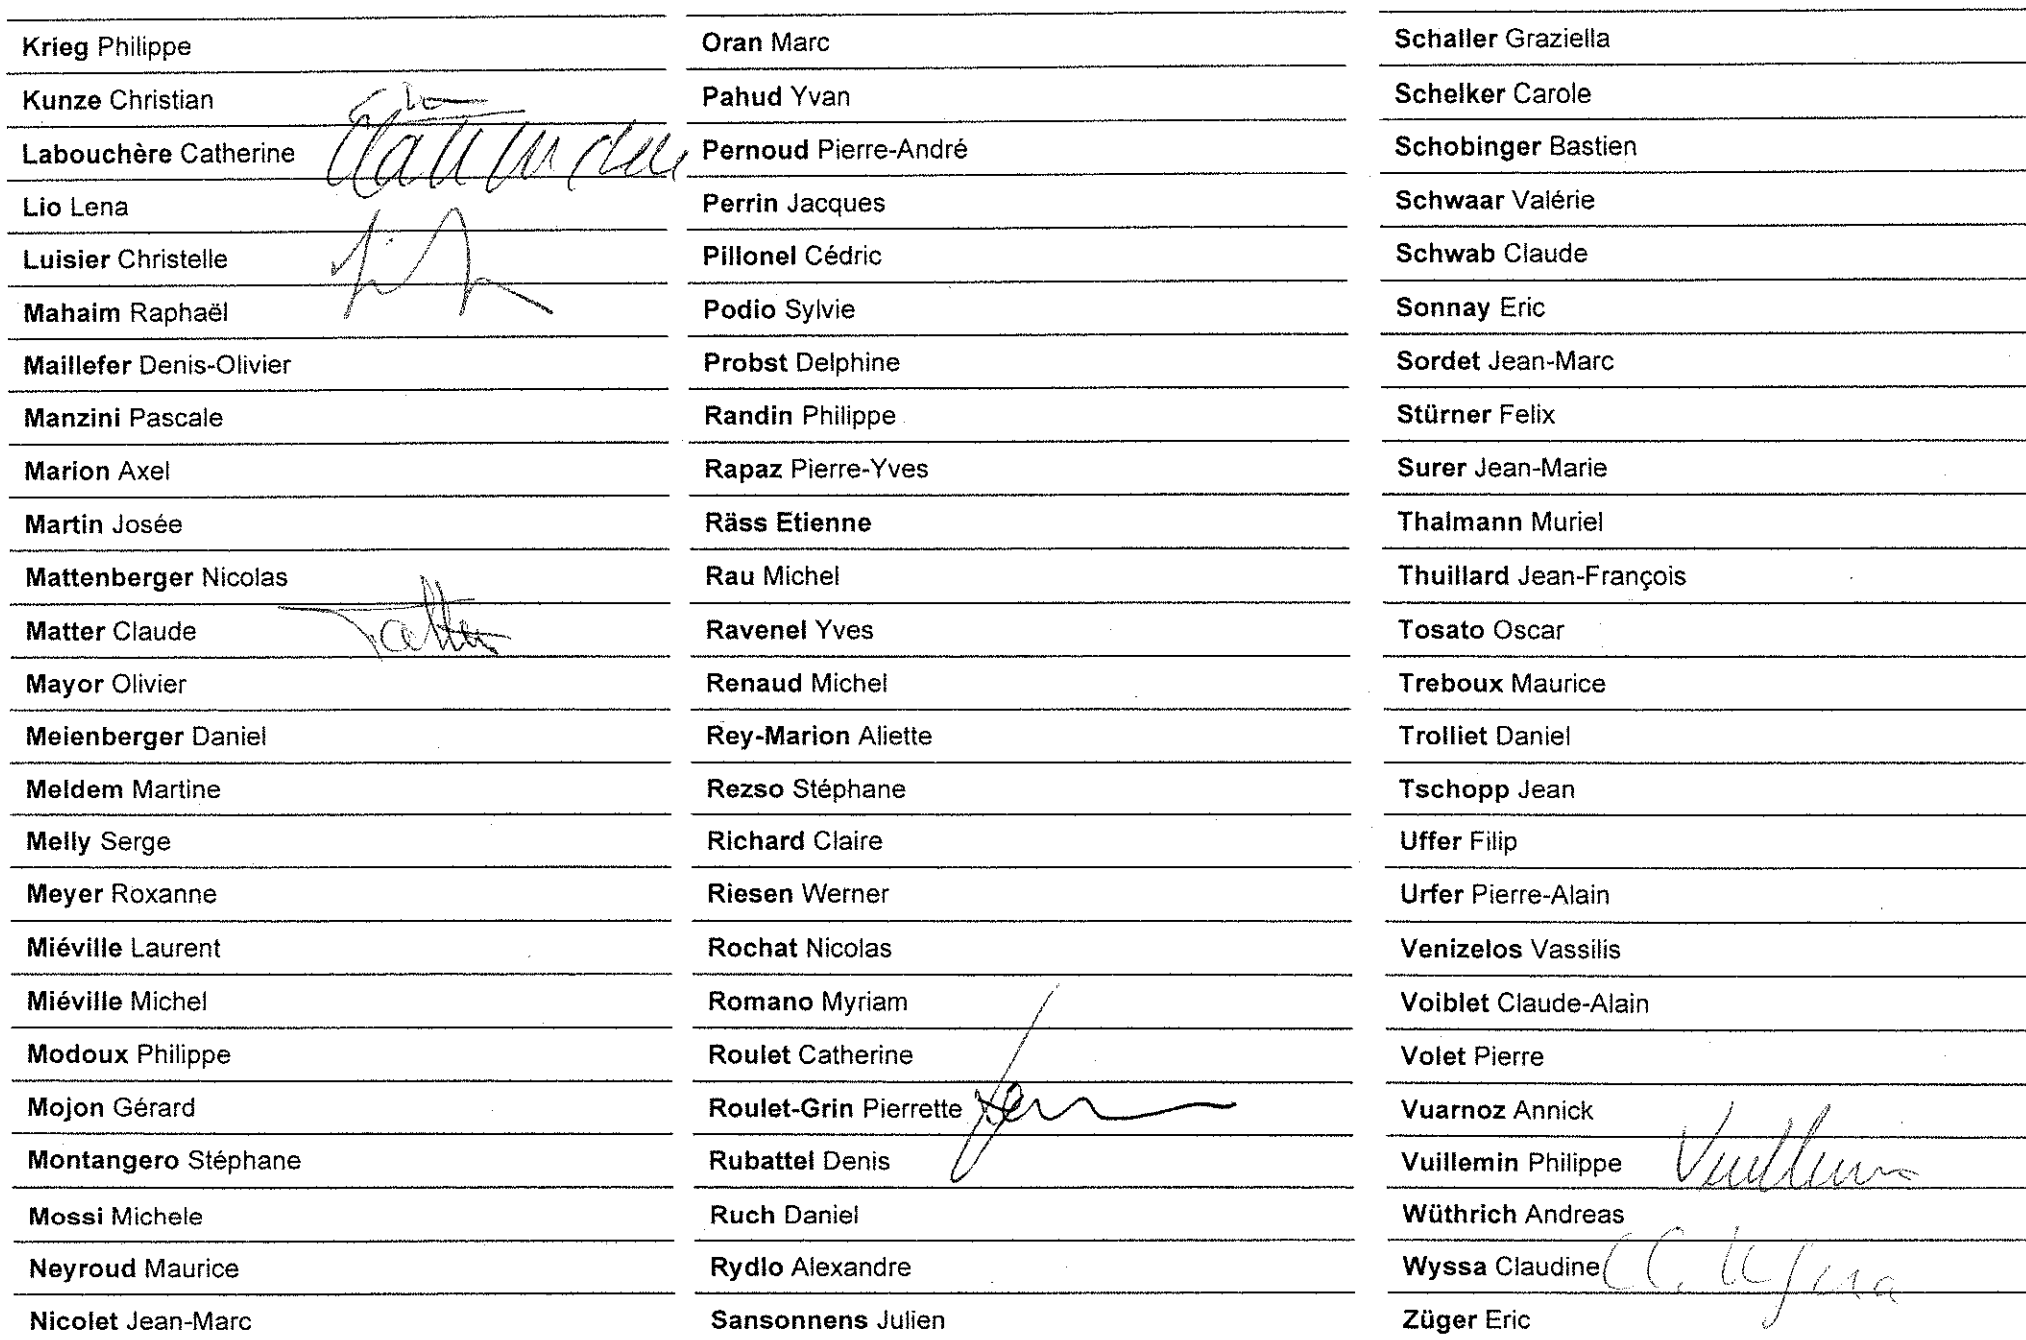 Krieg Philippe
Kunze Christian
Labouchère Catherine
Lio Lena
Luisier Christelle
Mahaim Raphaël
Maillefer Denis-Olivier
Manzini Pascale
Marion Axel
Martin Josée
Mattenberger Nicolas
Matter Claude
Mayor Olivier
Meienberger Daniel
Meldem Martine
Melly Serge
Meyer Roxanne
Miéville Laurent
Miéville Michel
Modoux Philippe
Mojon Gérard
Montangero Stéphane
Mossi Michele
Neyroud Maurice
Nicolet Jean-Marc
Oran Marc
Pahud Yvan
Pernoud Pierre-André
Perrin Jacques
Pillonel Cédric
Podio Sylvie
Probst Delphine
Randin Philippe
Rapaz Pierre-Yves
Räss Etienne
Rau Michel
Ravenel Yves
Renaud Michel
Rey-Marion Aliette
Rezso Stéphane
Richard Claire
Riesen Werner
Rochat Nicolas
Romano Myriam
Roulet Catherine
Roulet-Grin Pierrette
Rubattel Denis
Ruch Daniel
Rydlo Alexandre
Sansonnens Julien
Schaller Graziella
Schelker Carole
Schobinger Bastien
Schwaar Valérie
Schwab Claude
Sonnay Eric
Sordet Jean-Marc
Stürner Felix
Surer Jean-Marie
Thalmann Muriel
Thuillard Jean-François
Tosato Oscar
Treboux Maurice
Trolliet Daniel
Tschopp Jean
Uffer Filip
Urfer Pierre-Alain
Venizelos Vassilis
Voiblet Claude-Alain
Volet Pierre
Vuarnoz Annick
Vuillemin Philippe Vuillemin
Wüthrich Andreas
Wyssa Claudine
Züger Eric